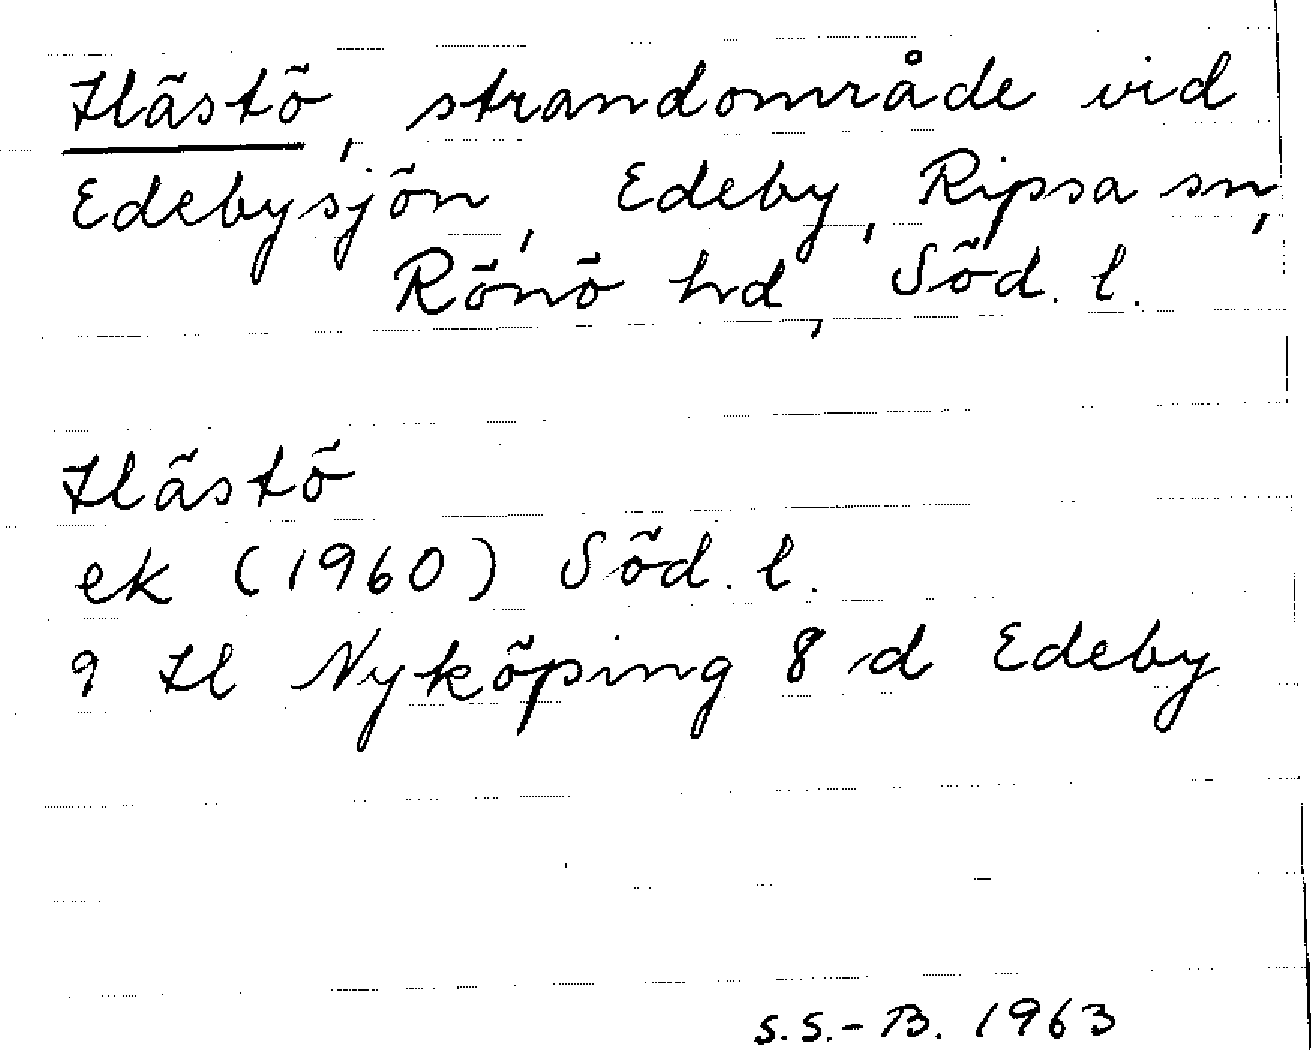 Hästö, strandområde vid
Edebysjön, Edeby, Ripsa sn,
Rönö hd, Söd. l.
Hästö
ek (1960) Söd. l.
9 H Nyköping 8 d Edeby
S.S.-B. 1963